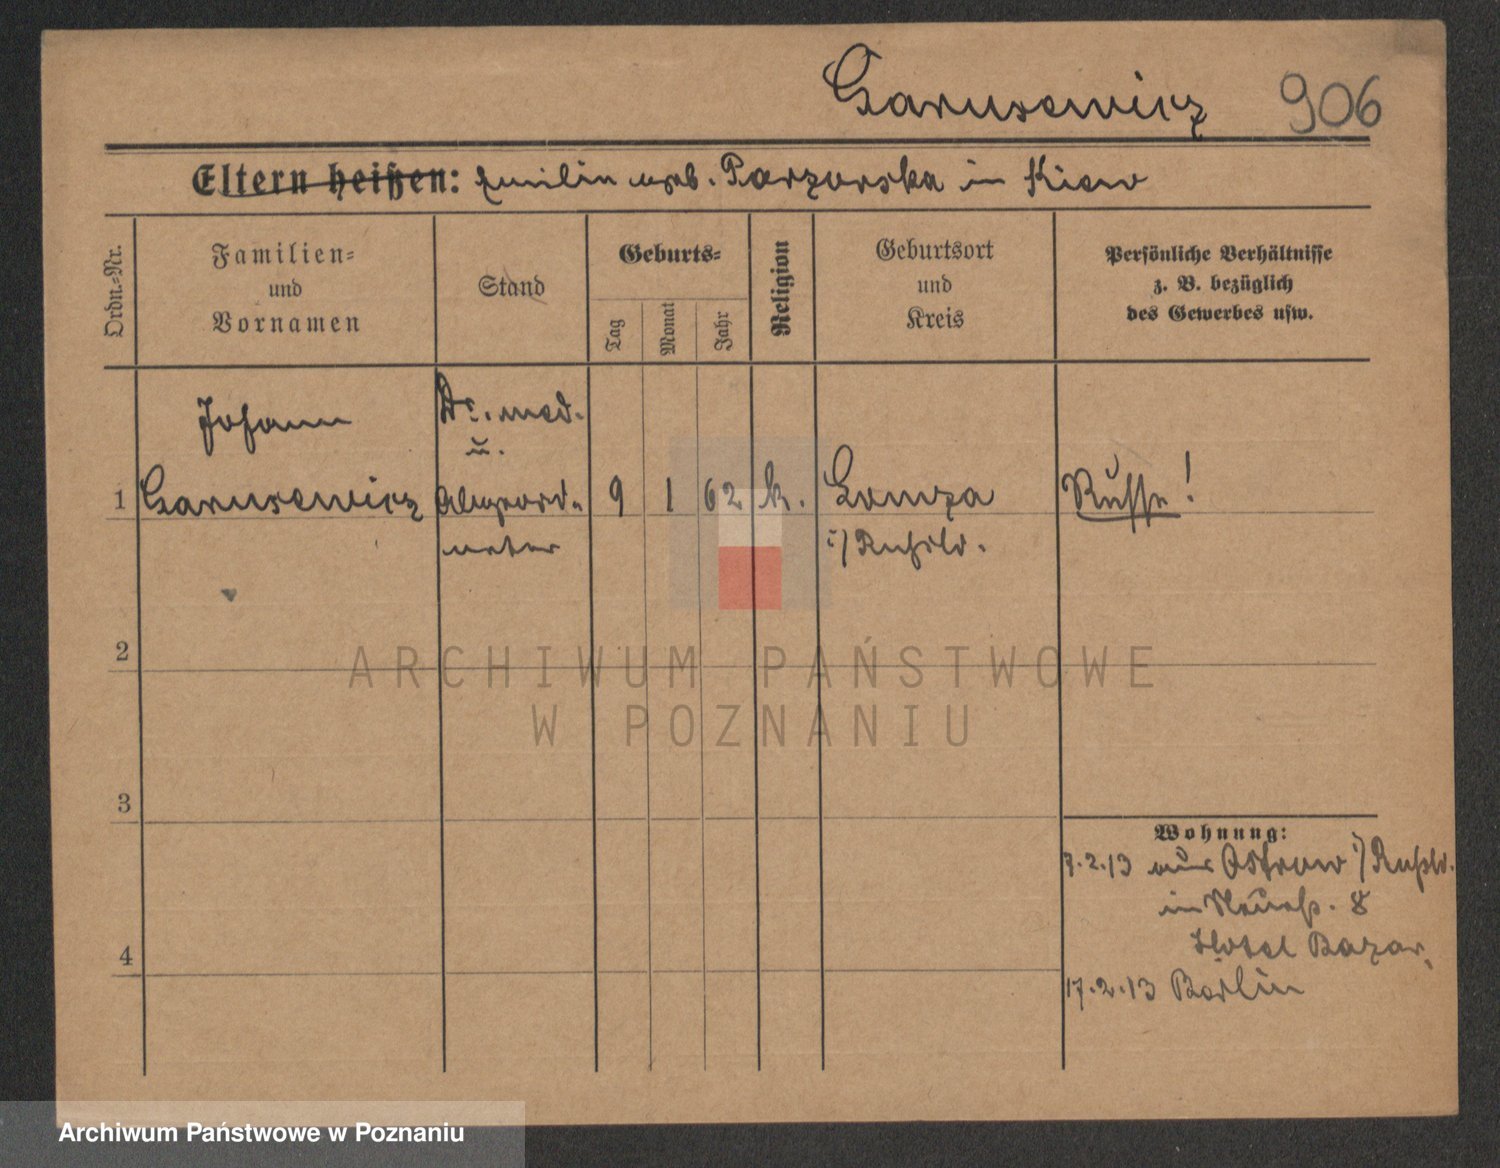 Garusewicz 906
Eltern heißen: Emilia geb. Parzorska in Kiew
Ordn.-Nr.
Familien-
und
Vornamen
Stand
Geburts-
Tag
Monat
Jahr
Religion
Geburtsort
und
Kreis
Persönliche Verhältnisse
z. B. bezüglich
des Gewerbes usw.
Johann
Dr. med.
u.
1 Garusewicz Abgeord- 9 1 62 k. Lomza Russe!
neter i/Rußld.
2
ARCHIWUM PAŃSTWOWE
W POZNANIU
3
Wohnung:
7.2.13 aus Ostrow i/Rußld.
in Neuestr. 8
Hotel Bazar,
4
17.2.13 Berlin
Archiwum Państwowe w Poznaniu